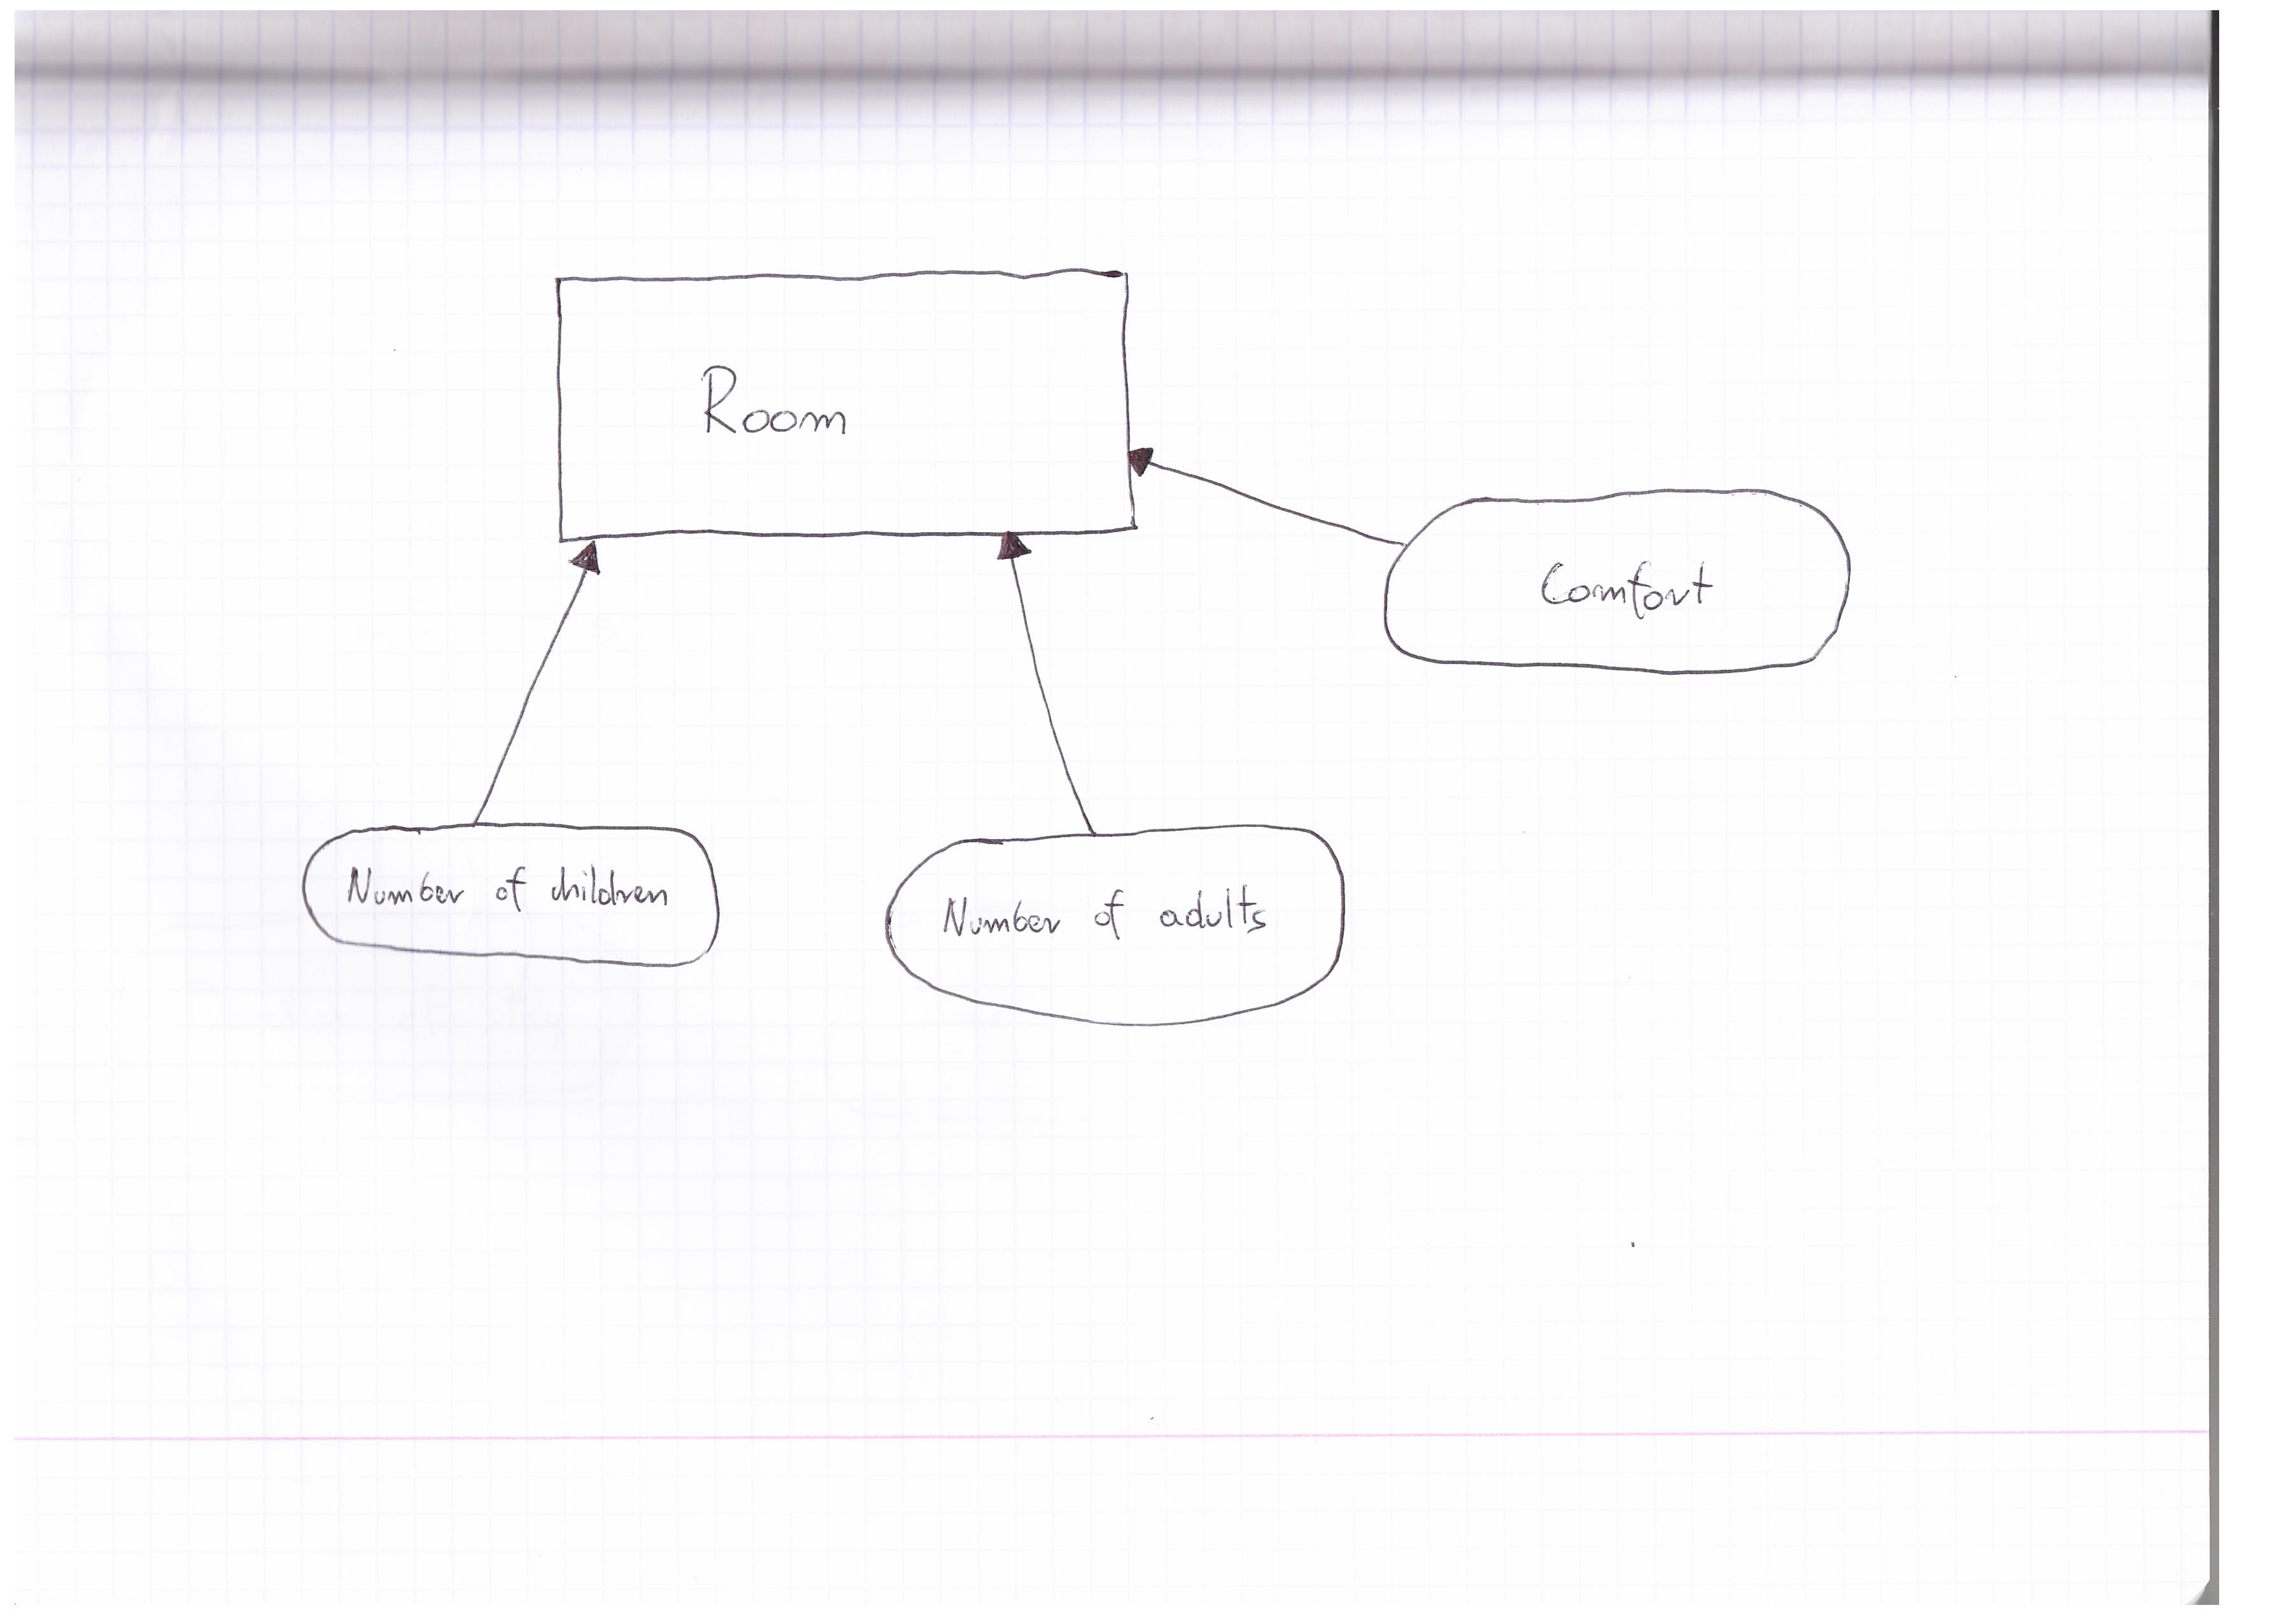 Room
Comfort
Number of children
Number of adults